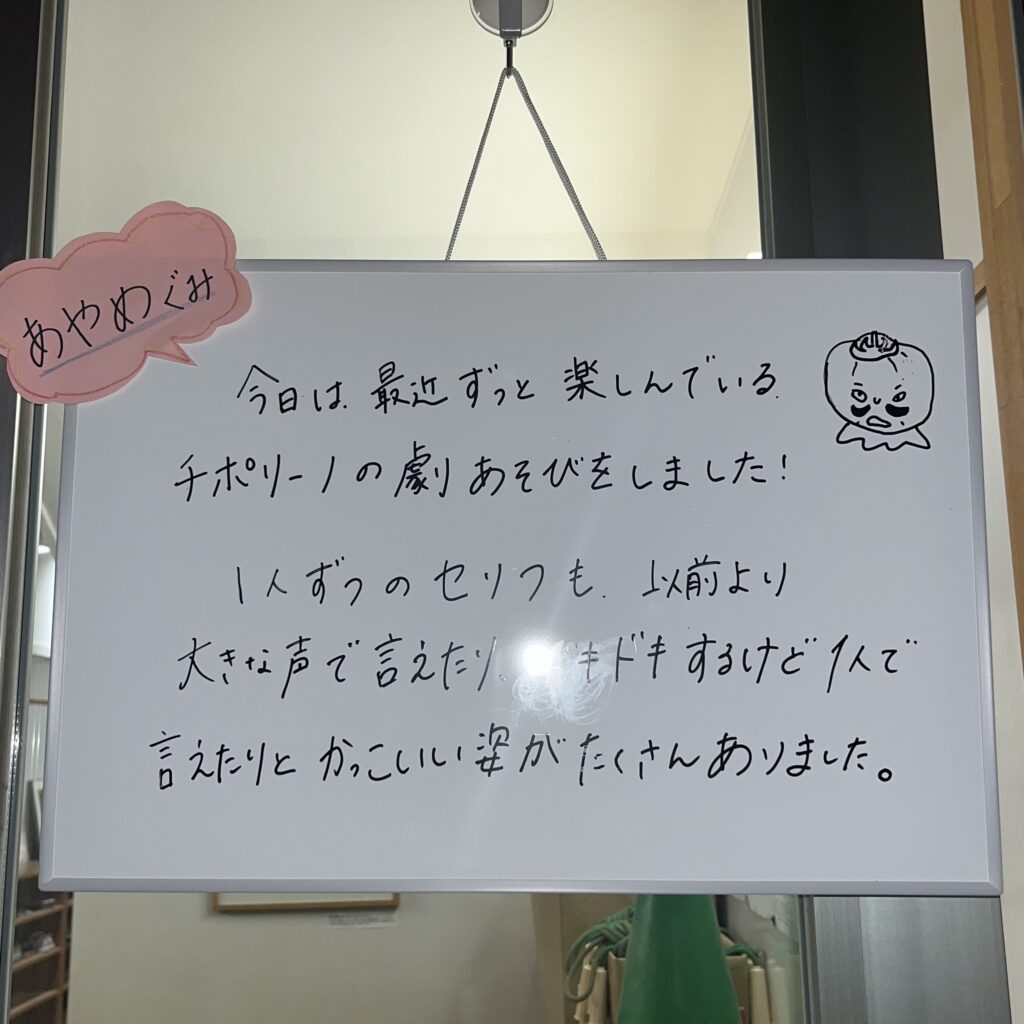 あやめぐみ
今日は、最近ずっと楽しんでいる、
チポリーノの劇あそびをしました！
1人ずつのセリフも、以前より
大きな声で言えたり、ドキドキするけど1人で
言えたりとかっこいい姿がたくさんありました。